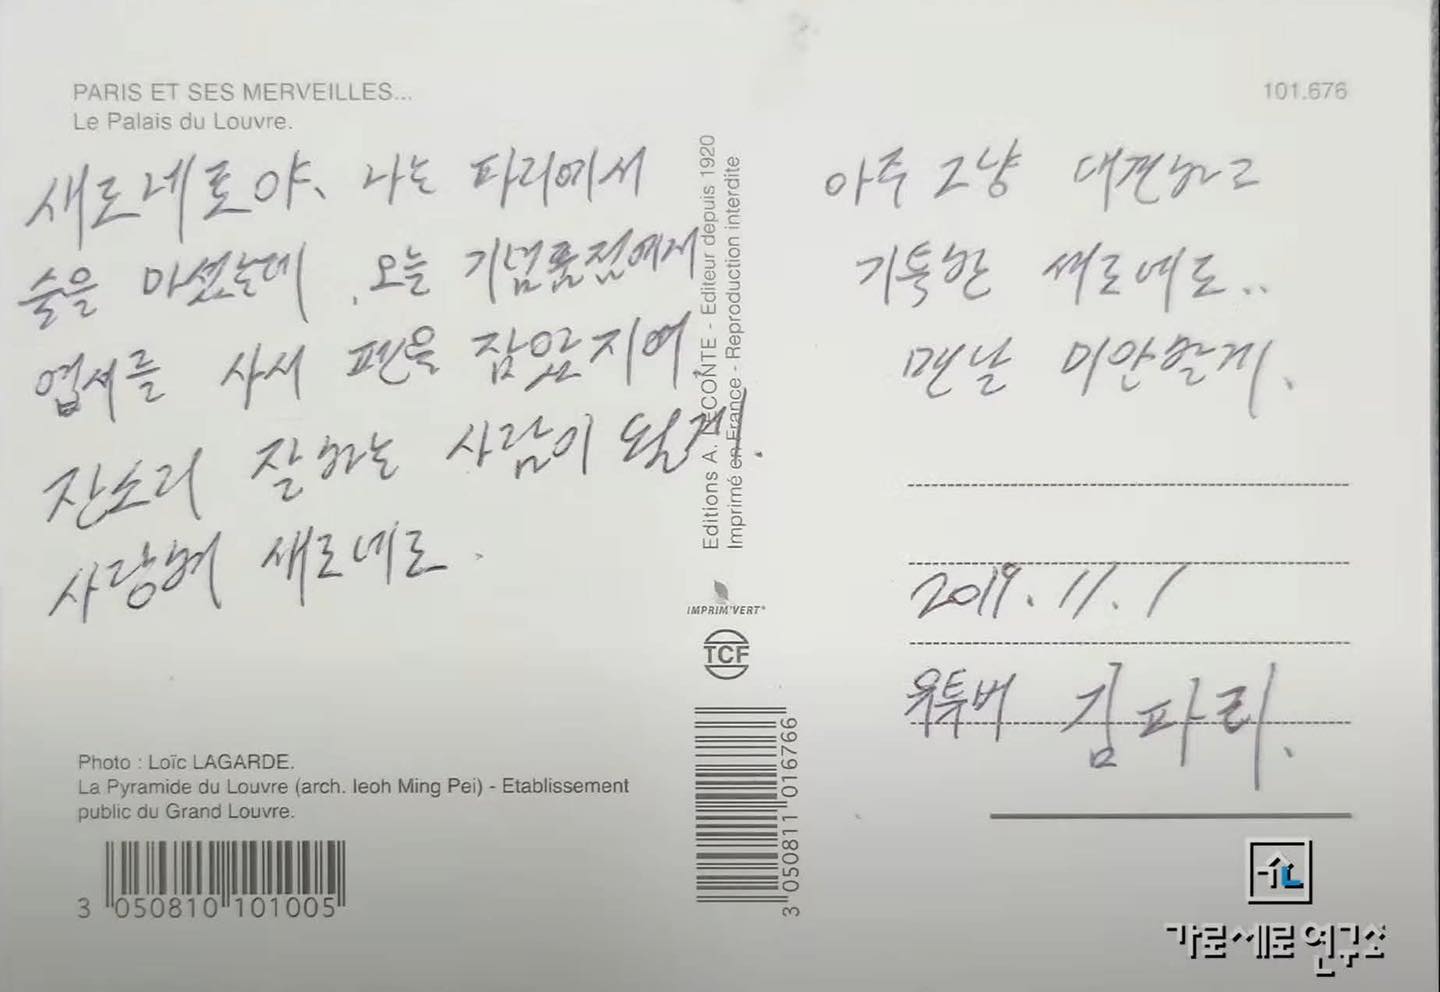 PARIS ET SES MERVEILLES...
Le Palais du Louvre.
101.676
새로네로야, 나는 파리에서
술을 마셨는데, 오늘 기념품점에서
엽서를 사서 펜을 잡았지여.
잔소리 잘하는 사람이 될게.
사랑해 새로네로.
아주 그냥 대견하고
기특한 새로네로..
맨날 미안할게.
2019.11.1
유투버 김파리.
Editions A. LECONTE - Editeur depuis 1920
Imprimé en France - Reproduction interdite
IMPRIM'VERT®
TCF
3 050811 016766
Photo : Loïc LAGARDE.
La Pyramide du Louvre (arch. Ieoh Ming Pei) - Etablissement
public du Grand Louvre.
3 050810 101005
가로세로연구소